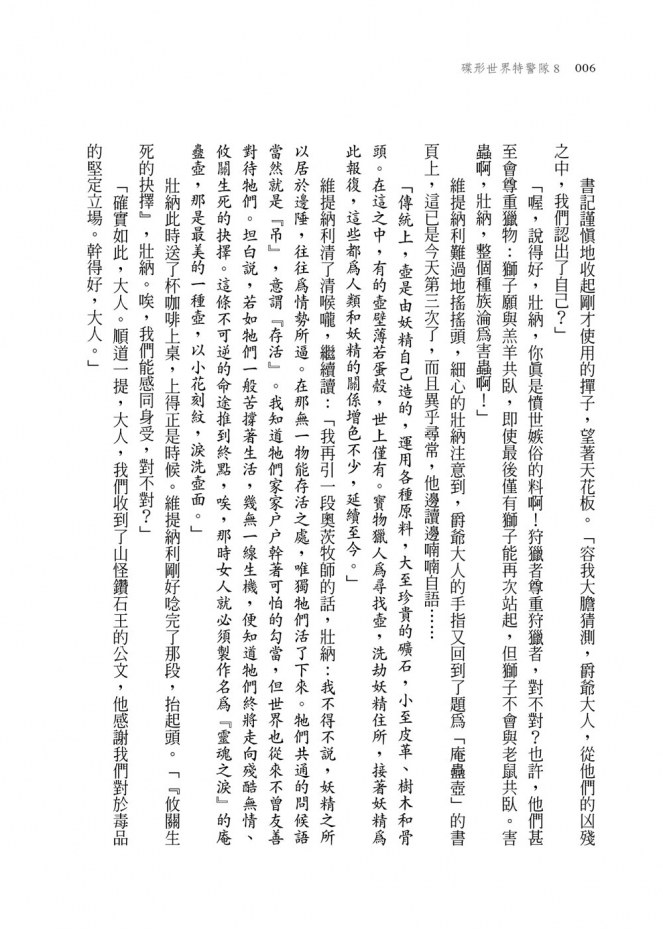 碟形世界特警隊 8　006
書記謹慎地收起剛才使用的撣子，望著天花板。「容我大膽猜測，爵爺大人，從他們的凶殘
之中，我們認出了自己？」
「喔，說得好，壯納，你真是憤世嫉俗的料啊！狩獵者尊重狩獵者，對不對？也許，他們甚
至會尊重獵物：獅子願與羔羊共臥，即使最後僅有獅子能再次站起，但獅子不會與老鼠共臥。害
蟲啊，壯納，整個種族淪為害蟲啊！」
維提納利難過地搖搖頭，細心的壯納注意到，爵爺大人的手指又回到了題為「庵蠱壺」的書
頁上，這已是今天第三次了，而且異乎尋常，他邊讀邊喃喃自語……
「傳統上，壺是由妖精自己造的，運用各種原料，大至珍貴的礦石，小至皮革、樹木和骨
頭。在這之中，有的壺壁薄若蛋殼，世上僅有。寶物獵人為尋找壺，洗劫妖精住所，接著妖精為
此報復，這些都為人類和妖精的關係增色不少，延續至今。」
維提納利清了清喉嚨，繼續讀：「我再引一段奧茨牧師的話，壯納：我不得不說，妖精之所
以居於邊陲，往往為情勢所逼。在那無一物能存活之處，唯獨牠們活了下來。牠們共通的問候語
當然就是『吊』，意謂『存活』。我知道牠們家家戶戶幹著可怕的勾當，但世界也從來不曾友善
對待牠們。坦白說，若如牠們一般苦撐著生活，幾無一線生機，便知道牠們終將走向殘酷無情、
攸關生死的抉擇。這條不可逆的命途推到終點，唉，那時女人就必須製作名為『靈魂之淚』的庵
蠱壺，那是最美的一種壺，以小花刻紋，淚洗壺面。」
壯納此時送了杯咖啡上桌，上得正是時候。維提納利剛好唸完了那段，抬起頭。「『攸關生
死的抉擇』，壯納。唉，我們能感同身受，對不對？」
「確實如此，大人。順道一提，大人，我們收到了山怪鑽石王的公文，他感謝我們對於毒品
的堅定立場。幹得好，大人。」